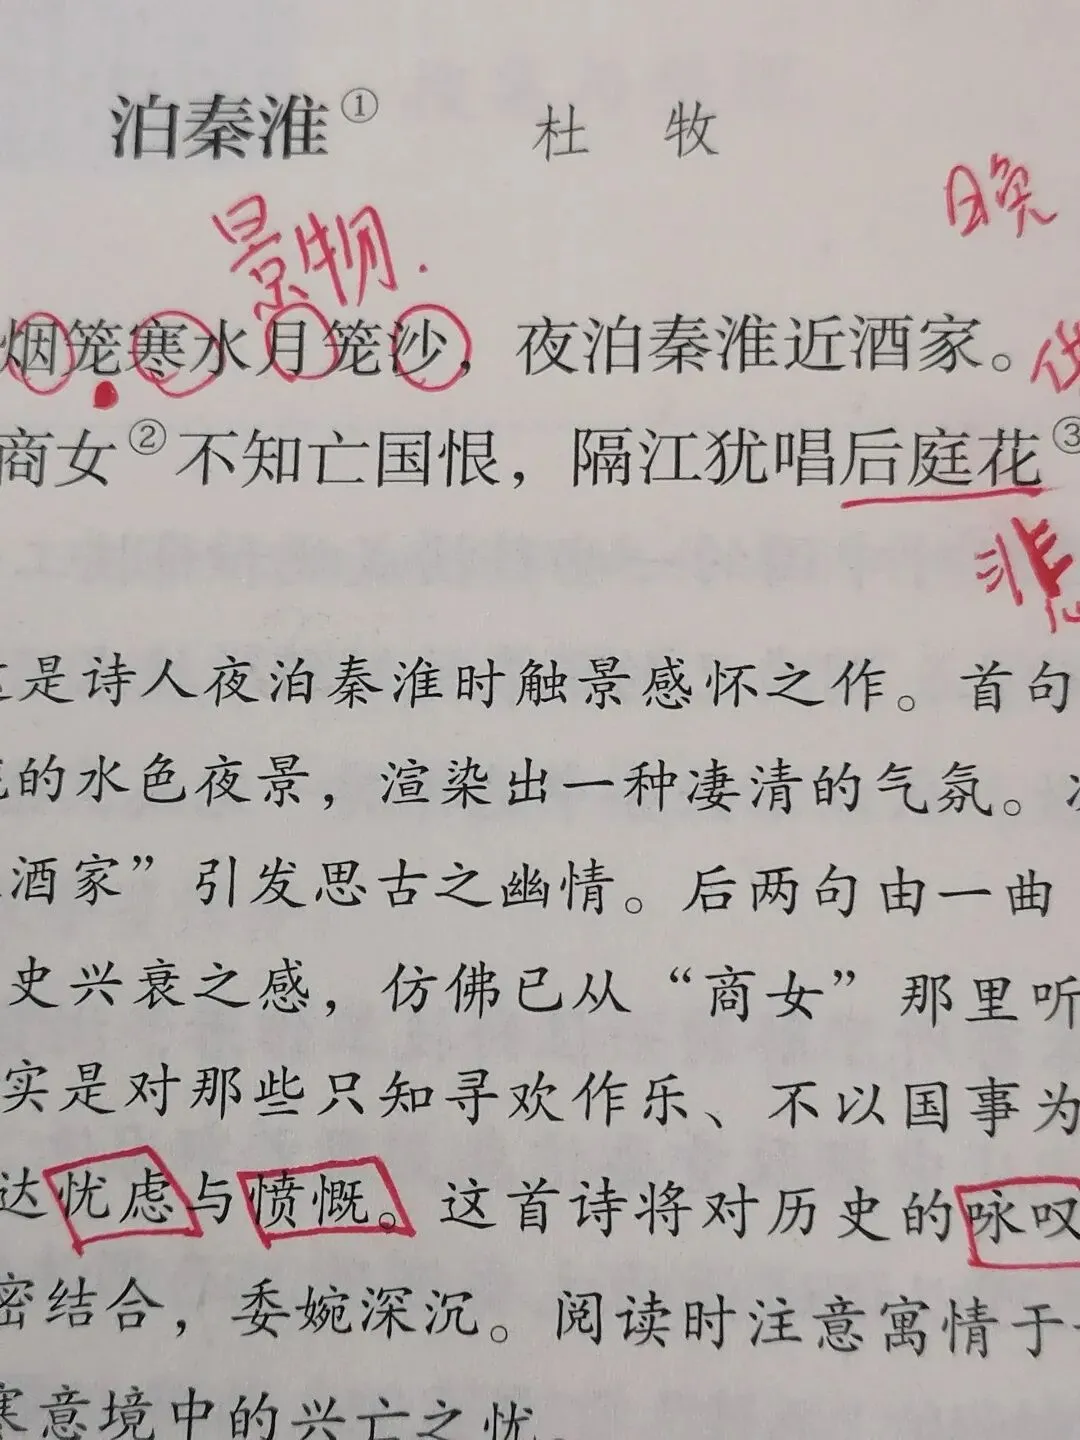 泊秦淮① 杜 牧
晚
景物.
烟笼寒水月笼沙，夜泊秦淮近酒家。
商女②不知亡国恨，隔江犹唱后庭花③
悲
是诗人夜泊秦淮时触景感怀之作。首句
的水色夜景，渲染出一种凄清的气氛。
酒家”引发思古之幽情。后两句由一曲
史兴衰之感，仿佛已从“商女”那里听
实是对那些只知寻欢作乐、不以国事为
达忧虑与愤慨。这首诗将对历史的咏叹
密结合，委婉深沉。阅读时注意寓情于
寒意境中的兴亡之忧。